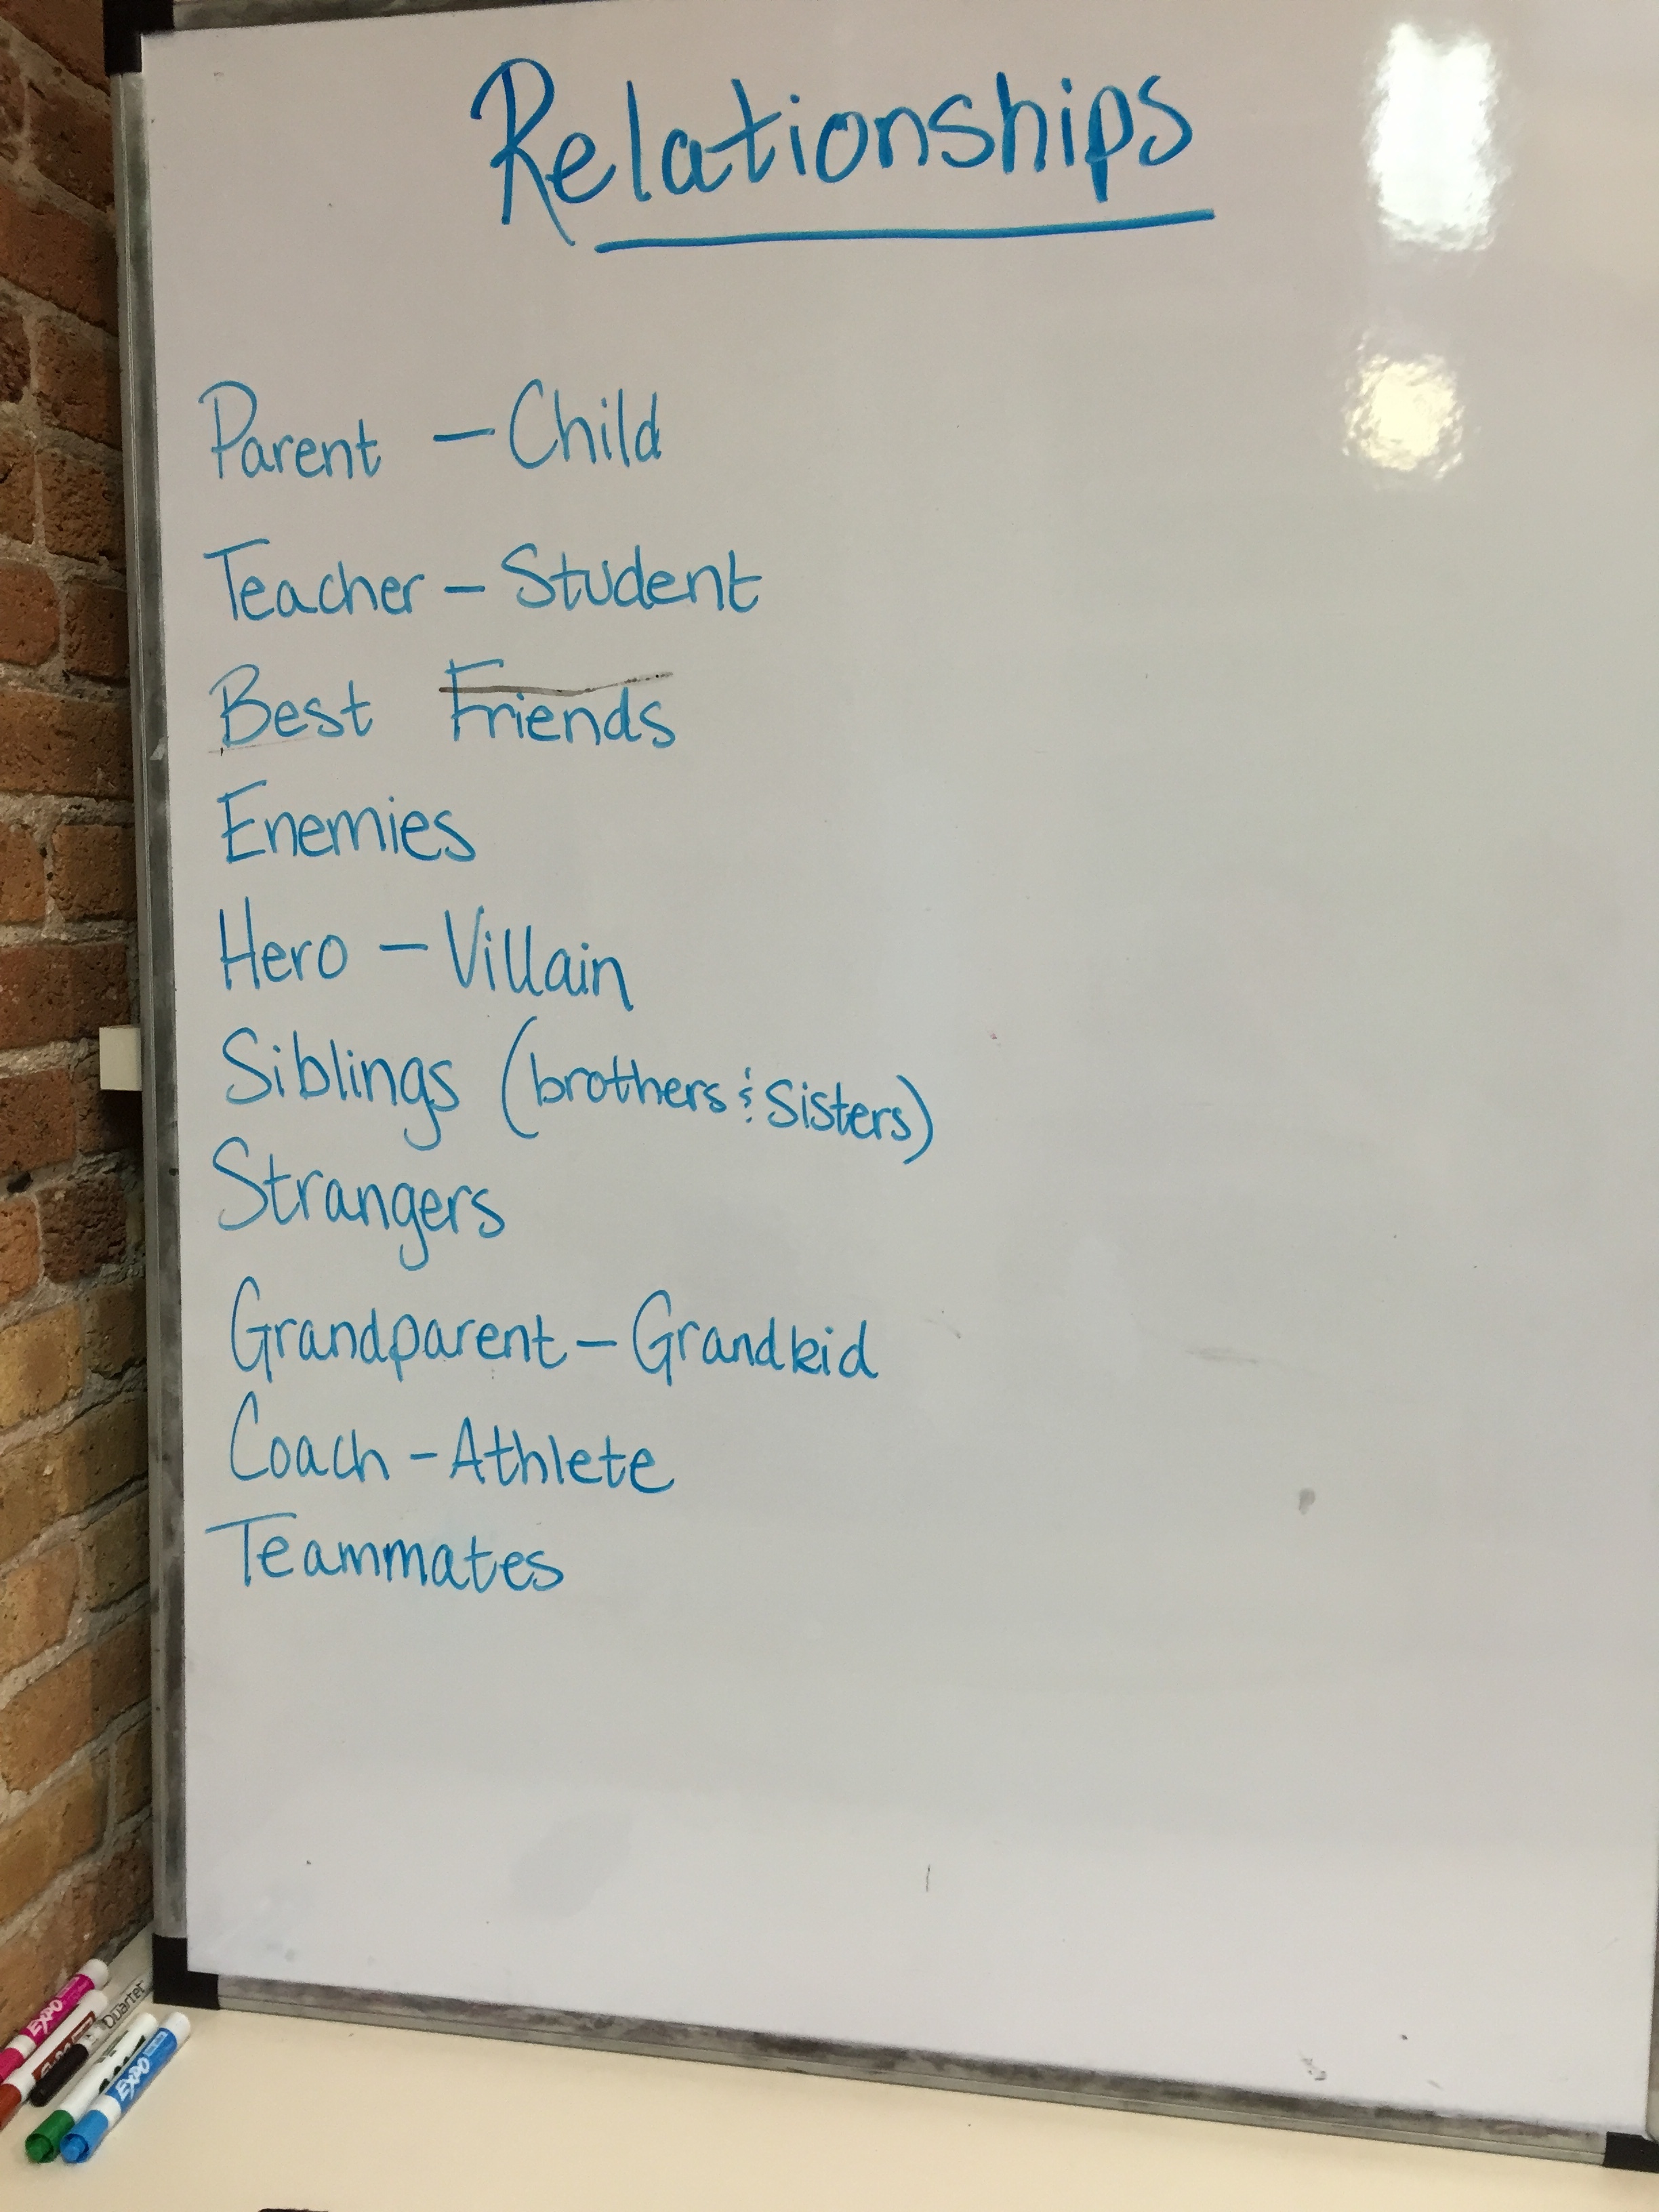 Relationships
Parent — Child
Teacher — Student
Best Friends
Enemies
Hero — Villain
Siblings (brothers & sisters)
Strangers
Grandparent — Grandkid
Coach — Athlete
Teammates
EXPO
Quartet
EXPO